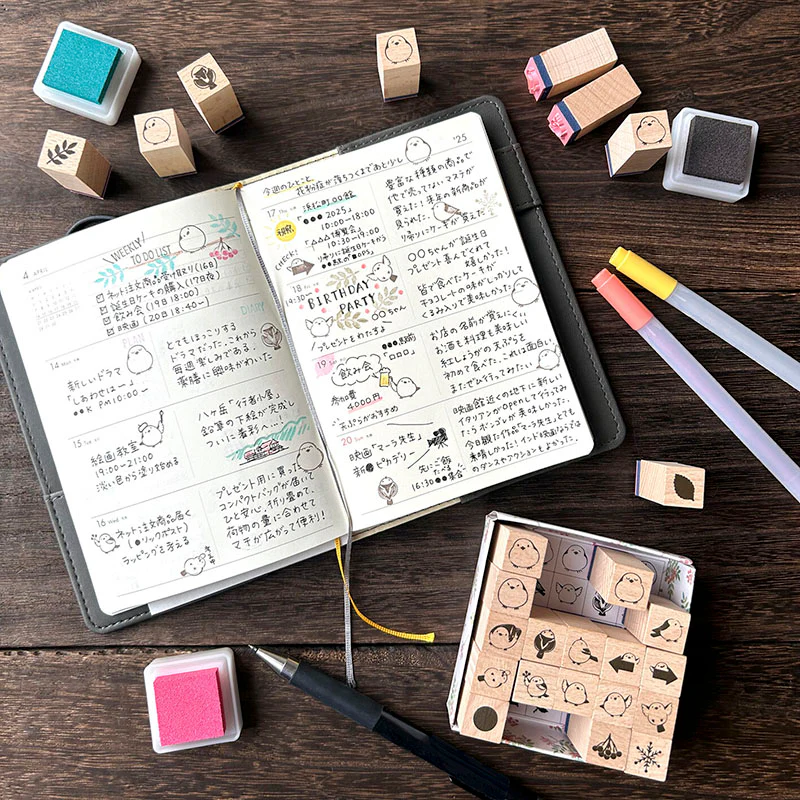 4 APRIL
WEEKLY
TO DO LIST
ネット注文商品受け取り(16日)
誕生日ケーキの購入(17日夜)
飲み会(19日 18:00)
映画(20日 18:40~)
PLAN
DIARY
14 Mon
新しいドラマ
「しあわせはー」
●●K PM10:00~
とてもほっこりする
ドラマだった。これから
毎週楽しみである!
薬膳に興味がわいた
15 Tue
絵画教室
19:00~21:00
淡い色から塗り始める
八ヶ岳「行者小屋」
鉛筆の下絵が完成し
ついに着彩へ…!
16 Wed
ネット注文商品届く
(●リックポスト)
ラッピングを考える
プレゼント用に買った
コンパクトバッグが届いて
ひと安心。折り畳めて、
荷物の量に合わせて
マチが広がって便利!
'25
今週のひとこと
花粉症が落ちつくまであと少し
17 Thu
浜松町○○館
祝祭
「●●● 2025」
10:00~18:00
「△△△博覧会」
10:30~19:00
CHECK!
帰りに誕生日ケーキから
豊富な種類の商品で
他で売ってないマステが
買えた!来年の新商品が
見られた。
帰りにケーキが買えた
18 Fri
19:30~
BIRTHDAY
PARTY
○○ちゃん
プレゼントをわたすよー
○○ちゃんが誕生日
プレゼント喜んでくれて
嬉しかった!
皆で食べたケーキが
チョコレートの味がしっかりして
くるみ入りで美味しかった
19 Sat
●●●駅前
「□□□□」
飲み会
参加費
4000円
天ぷらがおすすめ
お店の名前が覚えにくい
お酒も料理も美味しい
紅しょうがの天ぷらを
初めて食べた。これは面白い
またぜひ行ってみたい
20 Sun
映画「マーラ先生」
和● ピカデリー
先にご飯
16:30 ●●集合
映画館近くの地下に新しい
イタリアンがOPENして行ってみ
たらボンゴレが美味しかった。
今日観た作品「マーラ先生」とても
素晴しかった!インド映画ならでは
のダンスやアクションもよかった。